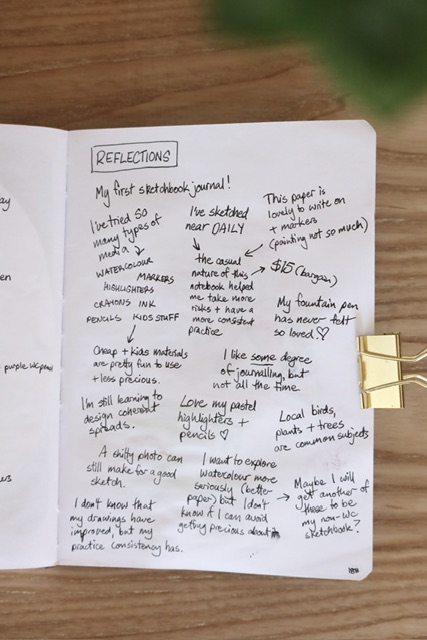 REFLECTIONS
My first sketchbook journal!
I've tried SO
many types of
media
WATERCOLOUR
MARKERS
HIGHLIGHTERS
CRAYONS INK
PENCILS KIDS STUFF
Cheap + kids materials
are pretty fun to use
+ less precious.
I've sketched
near DAILY
the casual
nature of this
notebook helped
me take more
risks + have a
more consistent
practice
This paper is
lovely to write on
+ markers
(painting not so much)
$15 (bargain)
My fountain pen
has never felt
so loved.♡
I like some degree
of journalling, but
not all the time.
I'm still learning to
design coherent
spreads.
Love my pastel
highlighters +
pencils ♡
Local birds,
plants + trees
are common subjects
A shitty photo can
still make for a good
sketch.
I want to explore
watercolour more
seriously (better
paper) but I don't
know if I can avoid
getting precious about
Maybe I will
get another of
these to be
my non-wc
sketchbook?
I don't know that
my drawings have
improved, but my
practice consistency has.
ay
en
purple wc pencil